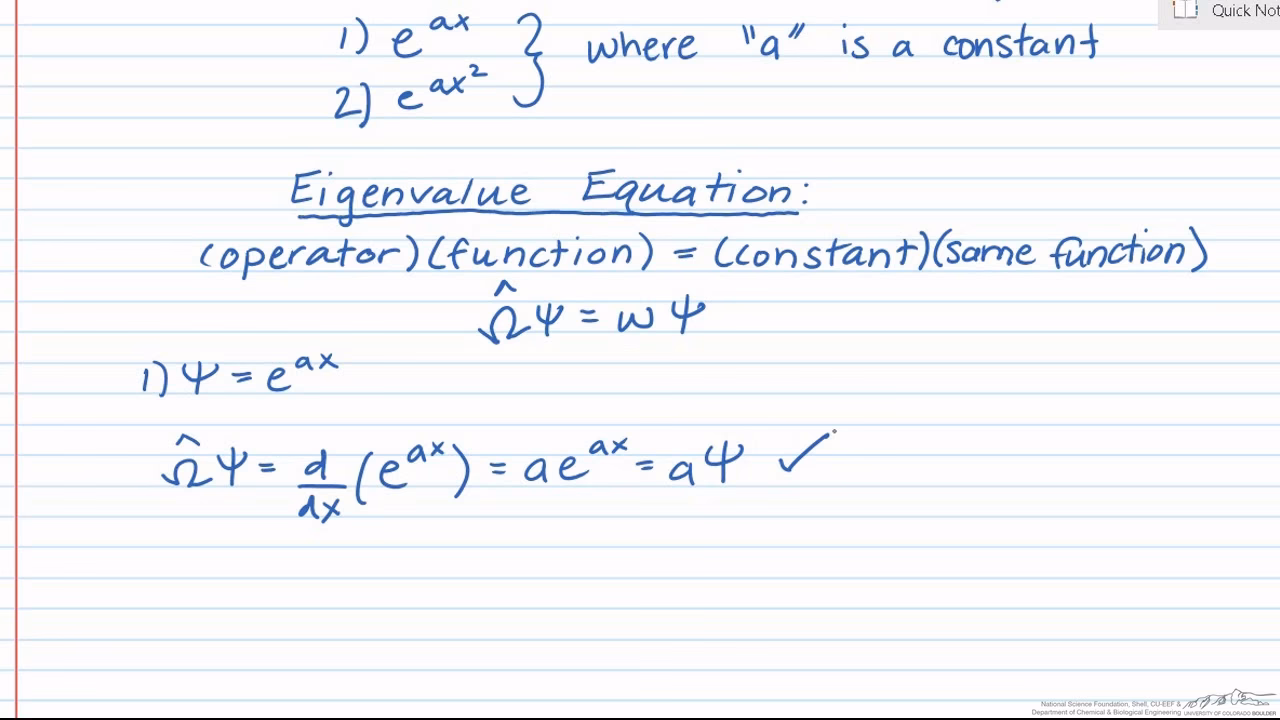 Quick Not
1) e^ax } where "a" is a constant
2) e^ax²
Eigenvalue Equation:
(operator)(function) = (constant)(same function)
Ω̂Ψ = wΨ
1) Ψ = e^ax
Ω̂Ψ = d/dx (e^ax) = ae^ax = aΨ ✓
National Science Foundation, Shell, CU-EEF &
Department of Chemical & Biological Engineering UNIVERSITY OF COLORADO BOULDER